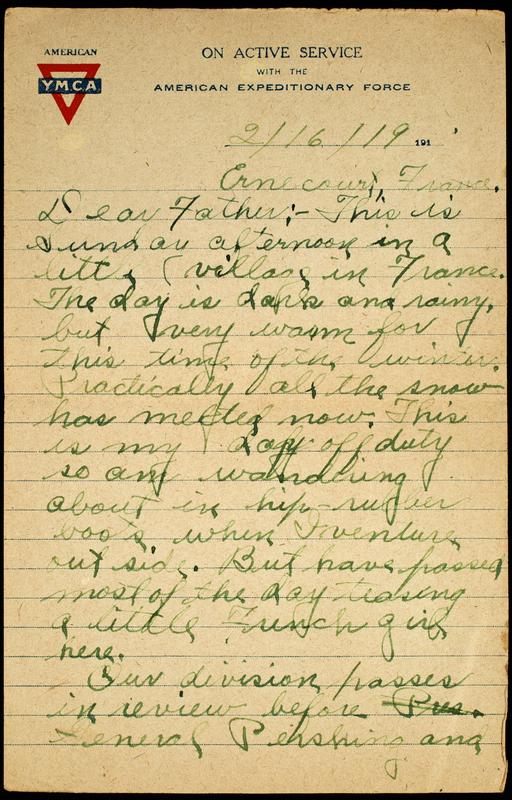 AMERICAN
YMCA
ON ACTIVE SERVICE
WITH THE
AMERICAN EXPEDITIONARY FORCE
2/16/19 191
Ernecourt, France.
Dear Father:- This is
Sunday afternoon in a
little village in France.
The day is dark and rainy,
but very warm for
this time of the winter.
Practically all the snow
has melted now. This
is my day off duty
so am wandering
about in hip-rubber
boots when I venture
out side. But have passed
most of the day teasing
a little French girl
here.
Our division passes
in review before Pres.
General Pershing and